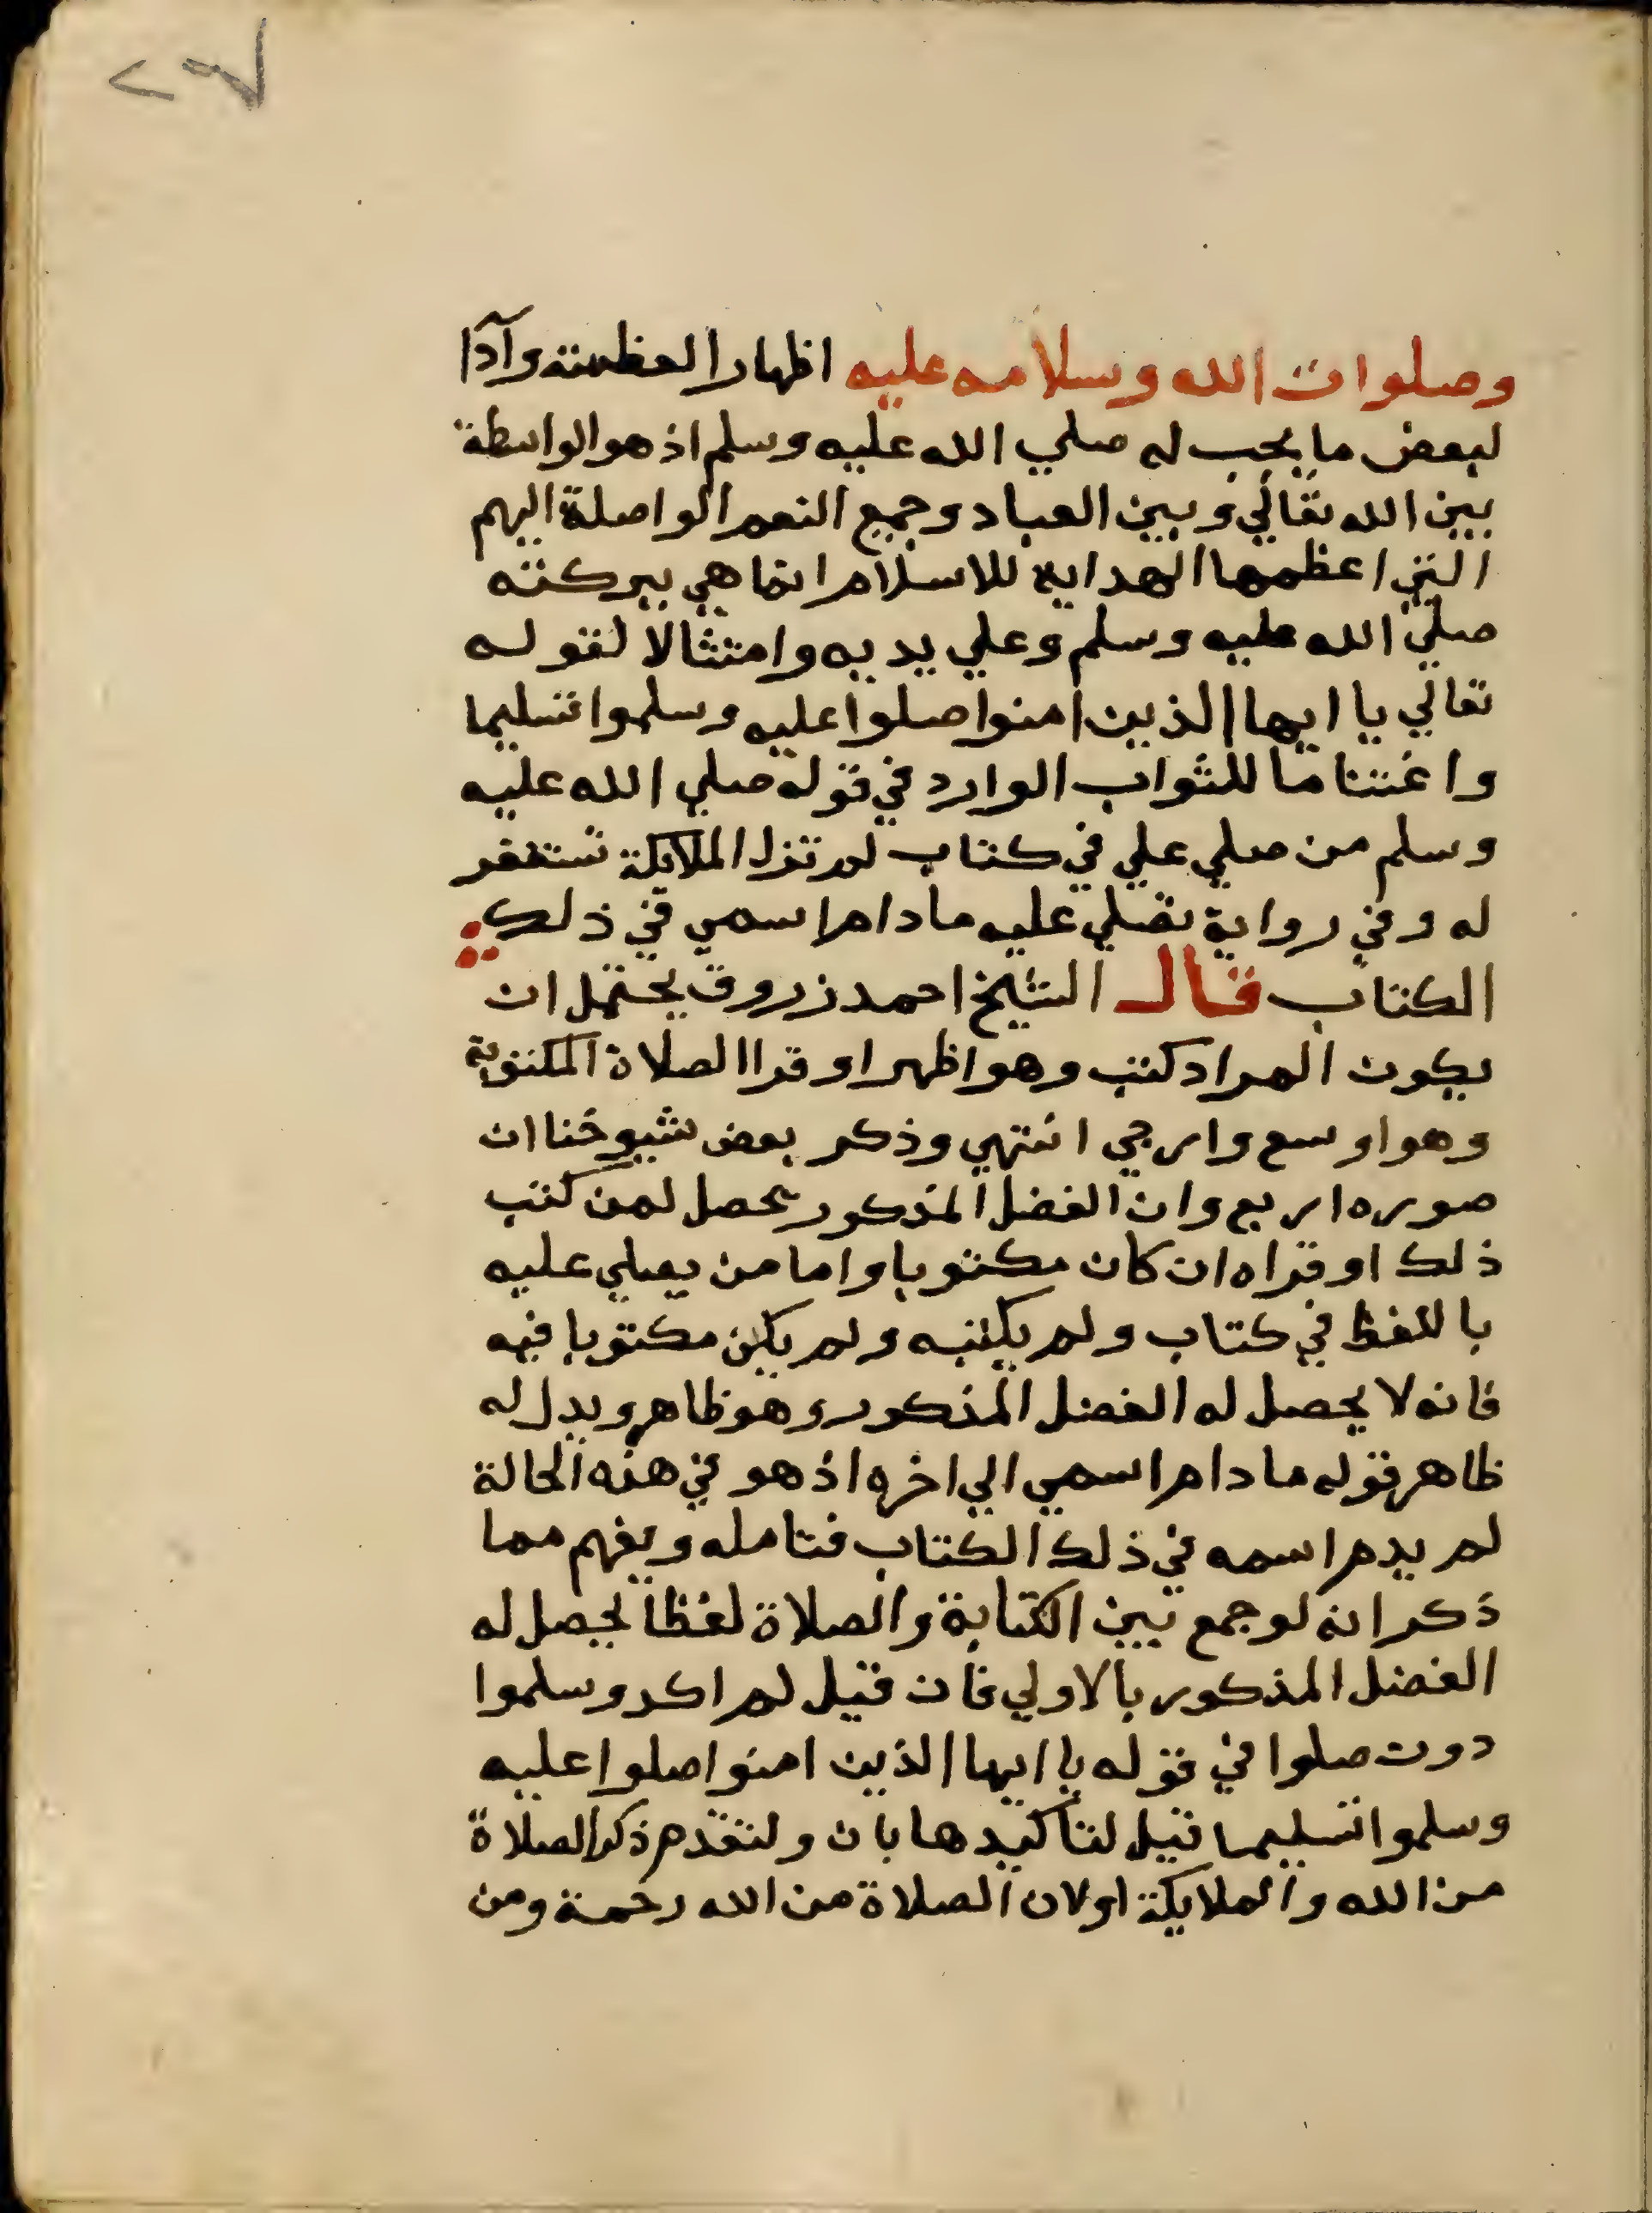 وصلوات الله وسلامه عليه اظهارا لعظمته وآدا
لبعض ما يجب له صلي الله عليه وسلم اذ هو الواسطة
بين الله تعالي وبين العباد وجميع النعم الواصلة اليهم
التي اعظمها الهداية للاسلام انما هي ببركته
صلي الله عليه وسلم وعلي يديه وامتثالا لقوله
تعالي يا ايها الذين امنوا صلوا عليه وسلموا تسليما
واغتناما للثواب الوارد في قوله صلي الله عليه
وسلم من صلي علي في كتاب لم تزل الملايكة تستغفر
له وفي رواية تصلي عليه ما دام اسمي في ذلك
الكتاب قال الشيخ احمد زروق يحتمل ان
يكون المراد كتب وهو اظهر او قرا الصلاة المكتوبة
وهو اوسع وارجي انتهي وذكر بعض شيوخنا ان
صوره اربع وان الفضل المذكور يحصل لمن كتب
ذلك او قراه ان كان مكتوبا واما من يصلي عليه
باللفظ في كتاب ولم يكتبه ولم يكن مكتوبا فيه
فانه لا يحصل له الفضل المذكور وهو ظاهر ويدل له
ظاهر قوله ما دام اسمي الي اخره اذ هو في هذه الحالة
لم يدم اسمه في ذلك الكتاب فتامله ويفهم مما
ذكر انه لو جمع بين الكتابة والصلاة لفظا لحصل له
الفضل المذكور بالاولي فان قيل لم اكد وسلموا
دون صلوا في قوله يا ايها الذين امنوا صلوا عليه
وسلموا تسليما قيل لتاكيدها بان ولتقدم ذكر الصلاة
من الله والملايكة اولان الصلاة من الله رحمة ومن